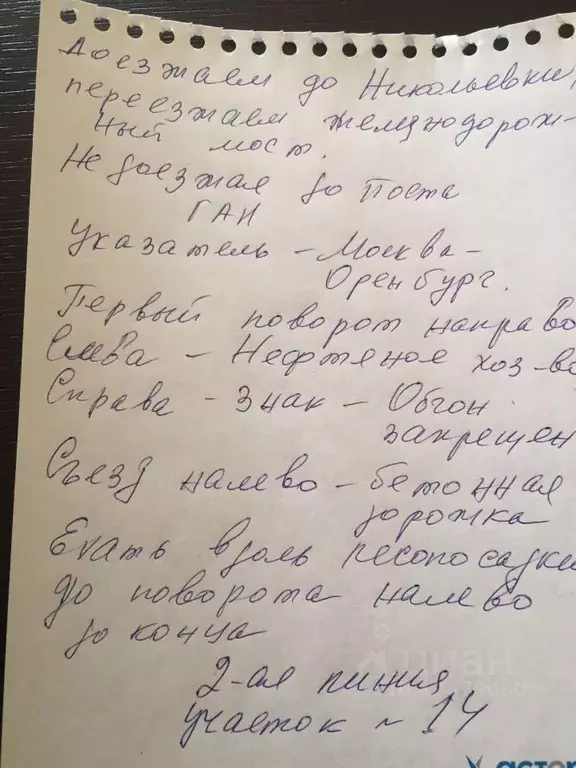 Доезжаем до Никольевки,
переезжаем железнодорож-
ный мост.
Не доезжая до Поста
ГАИ
Указатель - Москва-
Оренбург.
Первый поворот направо
Слева - Нефтяное хоз-во
Справа - Знак - Обгон
запрещен
Съезд налево - бетонная
дорожка
Ехать вдоль лесопосадки
до поворота налево
до конца
2-ая линия
участок ~ 14
Циан
астор